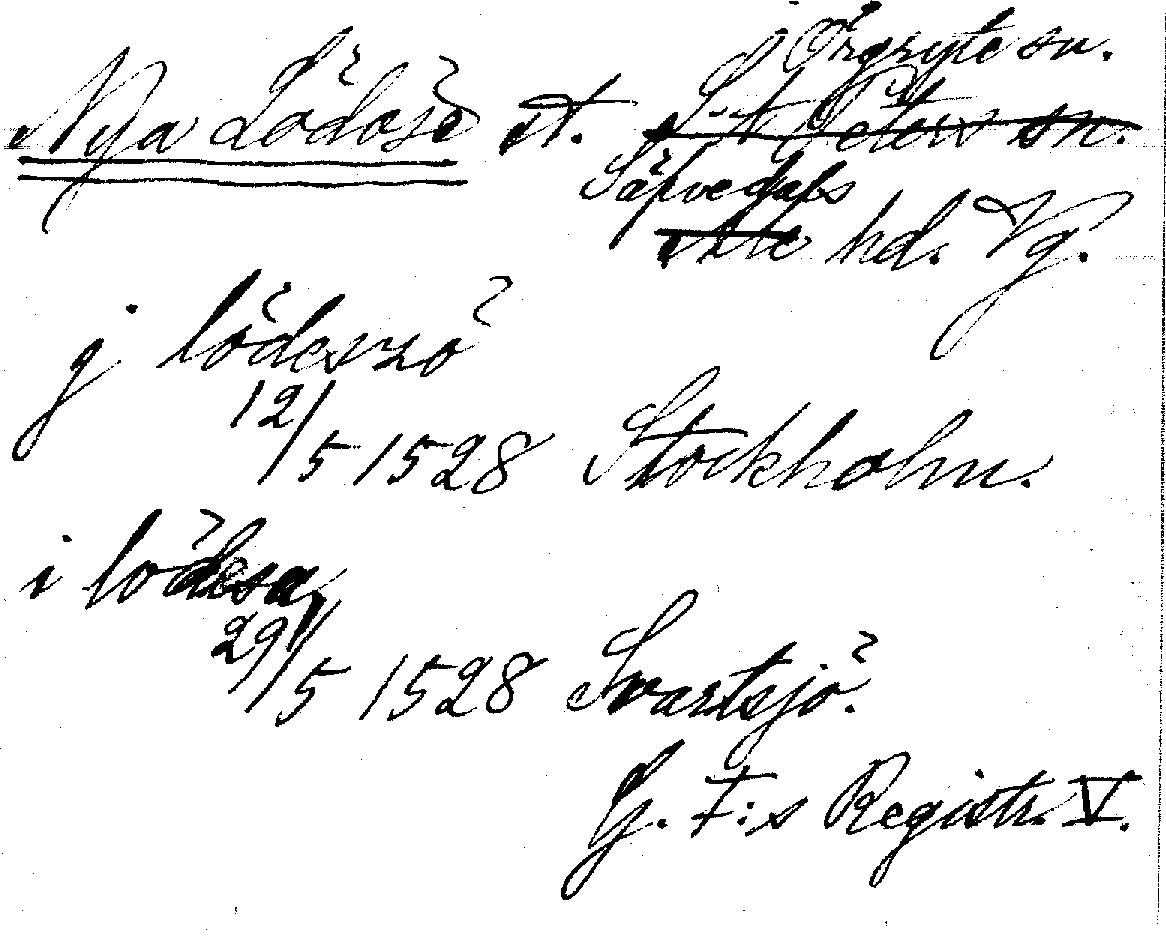 i Örgryte sn.
Nya Lödöse st. S:t Peters sn.
Säfvedals
Ale hd. Vg.
j lödeszö
12/5 1528 Stockholm.
i lödesa
29/5 1528 Svartsjö.
G. I:s Registr. V.